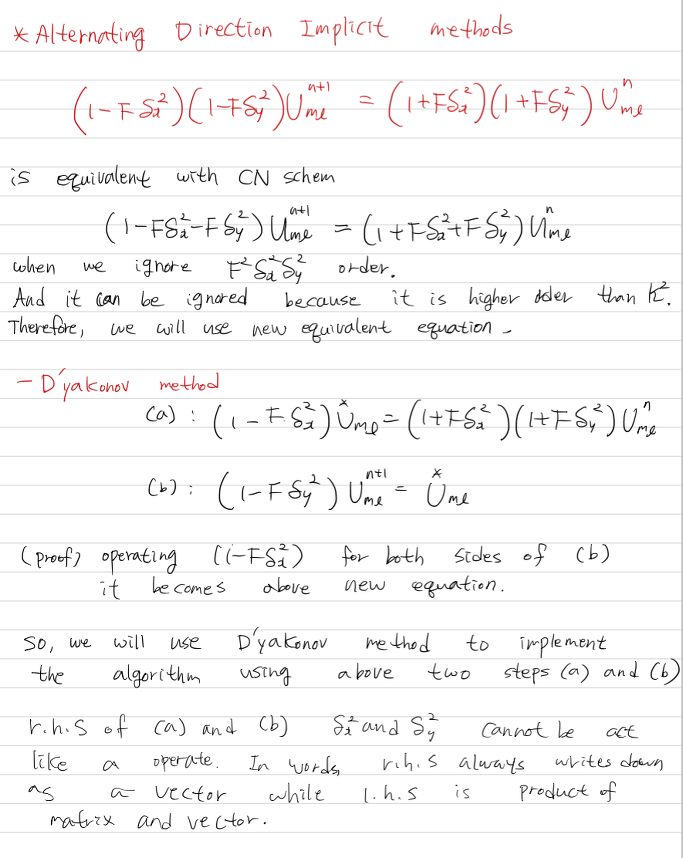 * Alternating Direction Implicit methods
(1-Fδx²)(1-Fδy²)U_{ml}^{n+1} = (1+Fδx²)(1+Fδy²)U_{ml}^{n}
is equivalent with CN schem
(1-Fδx²-Fδy²)U_{ml}^{n+1} = (1+Fδx²+Fδy²)U_{ml}^{n}
when we ignore F²δx²δy² order.
And it can be ignored because it is higher order than k².
Therefore, we will use new equivalent equation.
- D'yakonov method
(a) : (1-Fδx²)U_{ml}^{*} = (1+Fδx²)(1+Fδy²)U_{ml}^{n}
(b) : (1-Fδy²)U_{ml}^{n+1} = U_{ml}^{*}
(proof) operating (1-Fδx²) for both sides of (b)
it becomes above new equation.
So, we will use D'yakonov method to implement
the algorithm using above two steps (a) and (b)
r.h.s of (a) and (b) δx² and δy² cannot be act
like a operate. In words, r.h.s always writes down
as a vector while l.h.s is product of
matrix and vector.